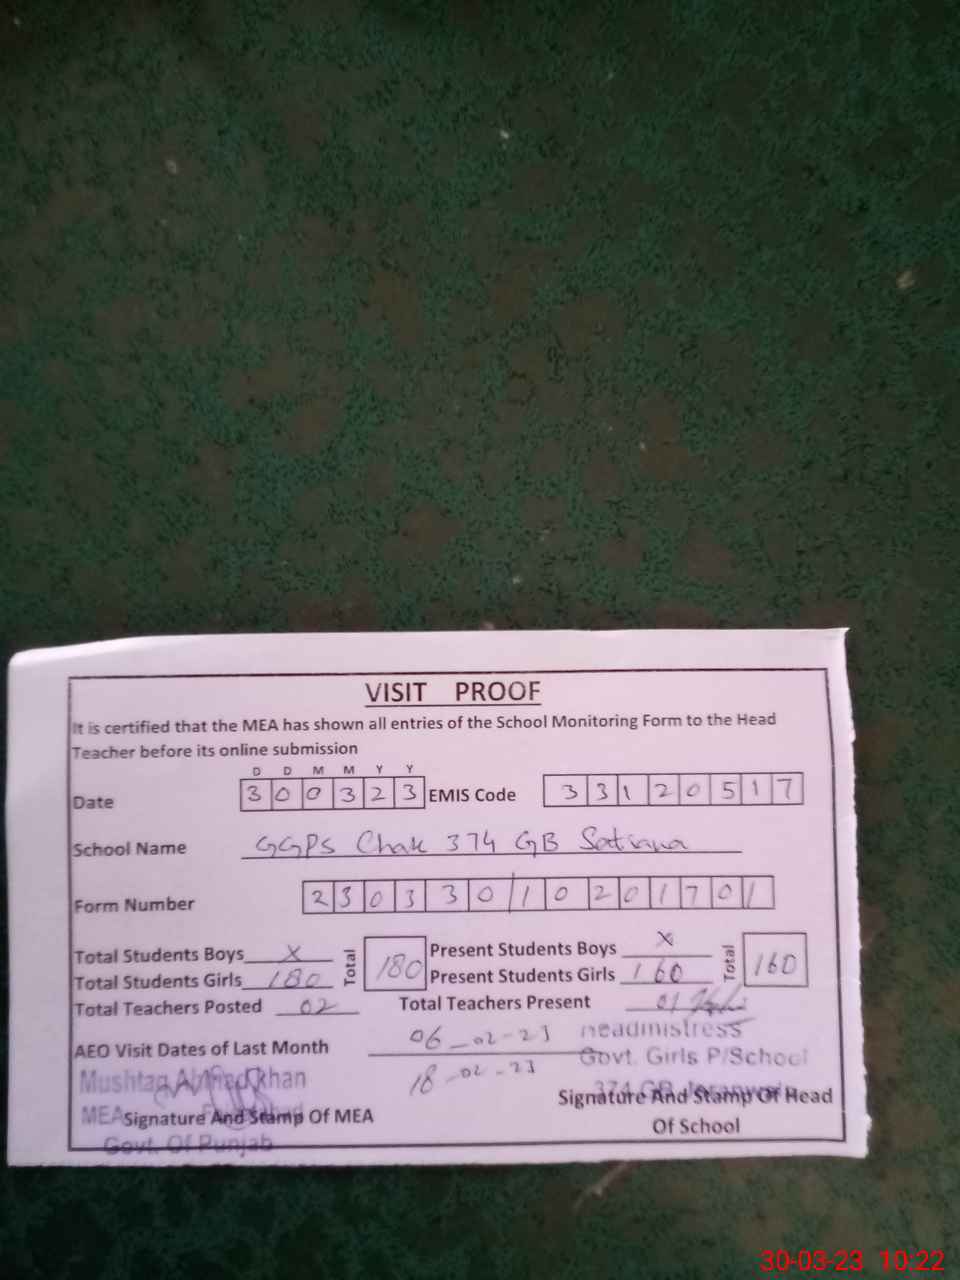 VISIT PROOF
It is certified that the MEA has shown all entries of the School Monitoring Form to the Head
Teacher before its online submission
D D M M Y Y
Date 3 0 0 3 2 3 EMIS Code 3 3 1 2 0 5 1 7
School Name GGPS Chak 374 GB Satiana
Form Number 2 3 0 3 3 0 1 0 2 0 1 7 0 1
Total Students Boys X Total 180 Present Students Boys X Total 160
Total Students Girls 180 Present Students Girls 160
Total Teachers Posted 02 Total Teachers Present 01
AEO Visit Dates of Last Month 06-02-23
18-02-23
Headmistress
Govt. Girls P/School
374 GB
Mushtaq Ahmed Khan
MEA
Govt. Of Punjab
Signature And Stamp Of MEA
Signature And Stamp Of Head
Of School
30-03-23 10:22